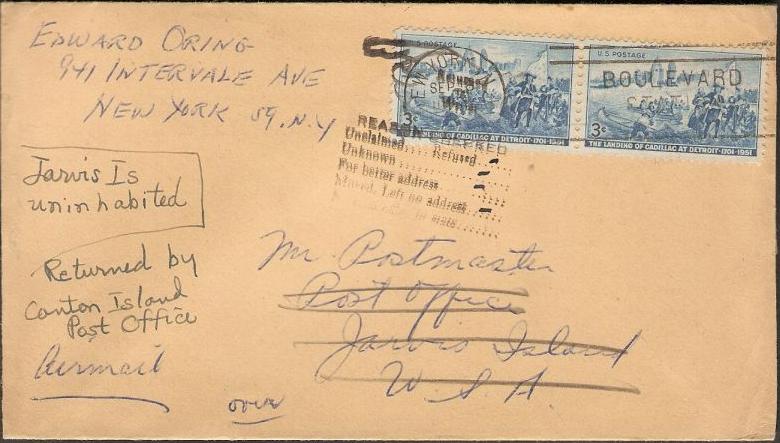 EDWARD ORING
941 INTERVALE AVE
NEW YORK 59, N.Y
U.S. POSTAGE
3¢
LANDING OF CADILLAC AT DETROIT·1701-1951
U.S. POSTAGE
3¢
THE LANDING OF CADILLAC AT DETROIT·1701-1951
NEW YORK
SEP
BOULEVARD
REASON
Unclaimed Refused
Unknown
For better address
Moved, Left no address
in state
Jarvis Is
uninhabited
Returned by
Canton Island
Post Office
Airmail
over
Mr Postmaster
Post Office
Jarvis Island
U S A